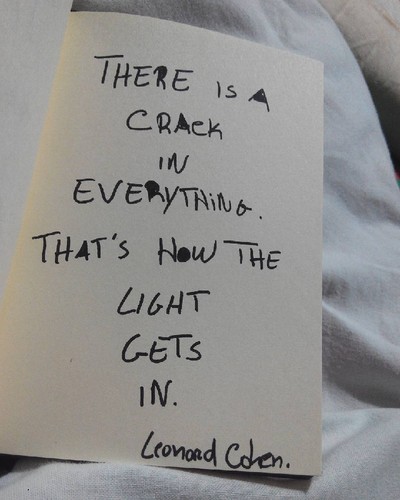 THERE IS A
CRACK
IN
EVERYTHING.
THAT'S HOW THE
LIGHT
GETS
IN.
Leonard Cohen.